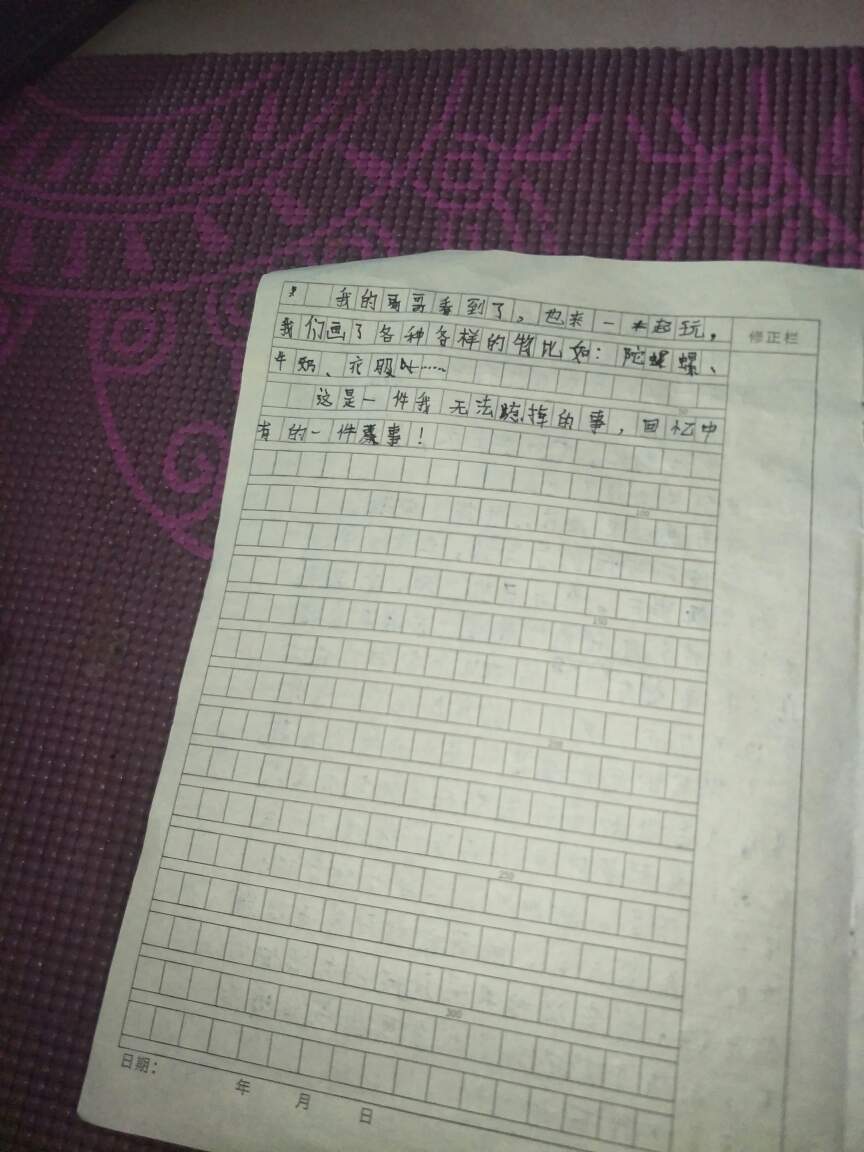 我的哥哥看到了，也来一起玩，
修正栏
我们画了各种各样的物比如：陀螺螺、
牛奶、衣服……
这是一件我无法掉的事，回忆中
有的一件事！
100
150
200
250
300
日期：
年 月 日